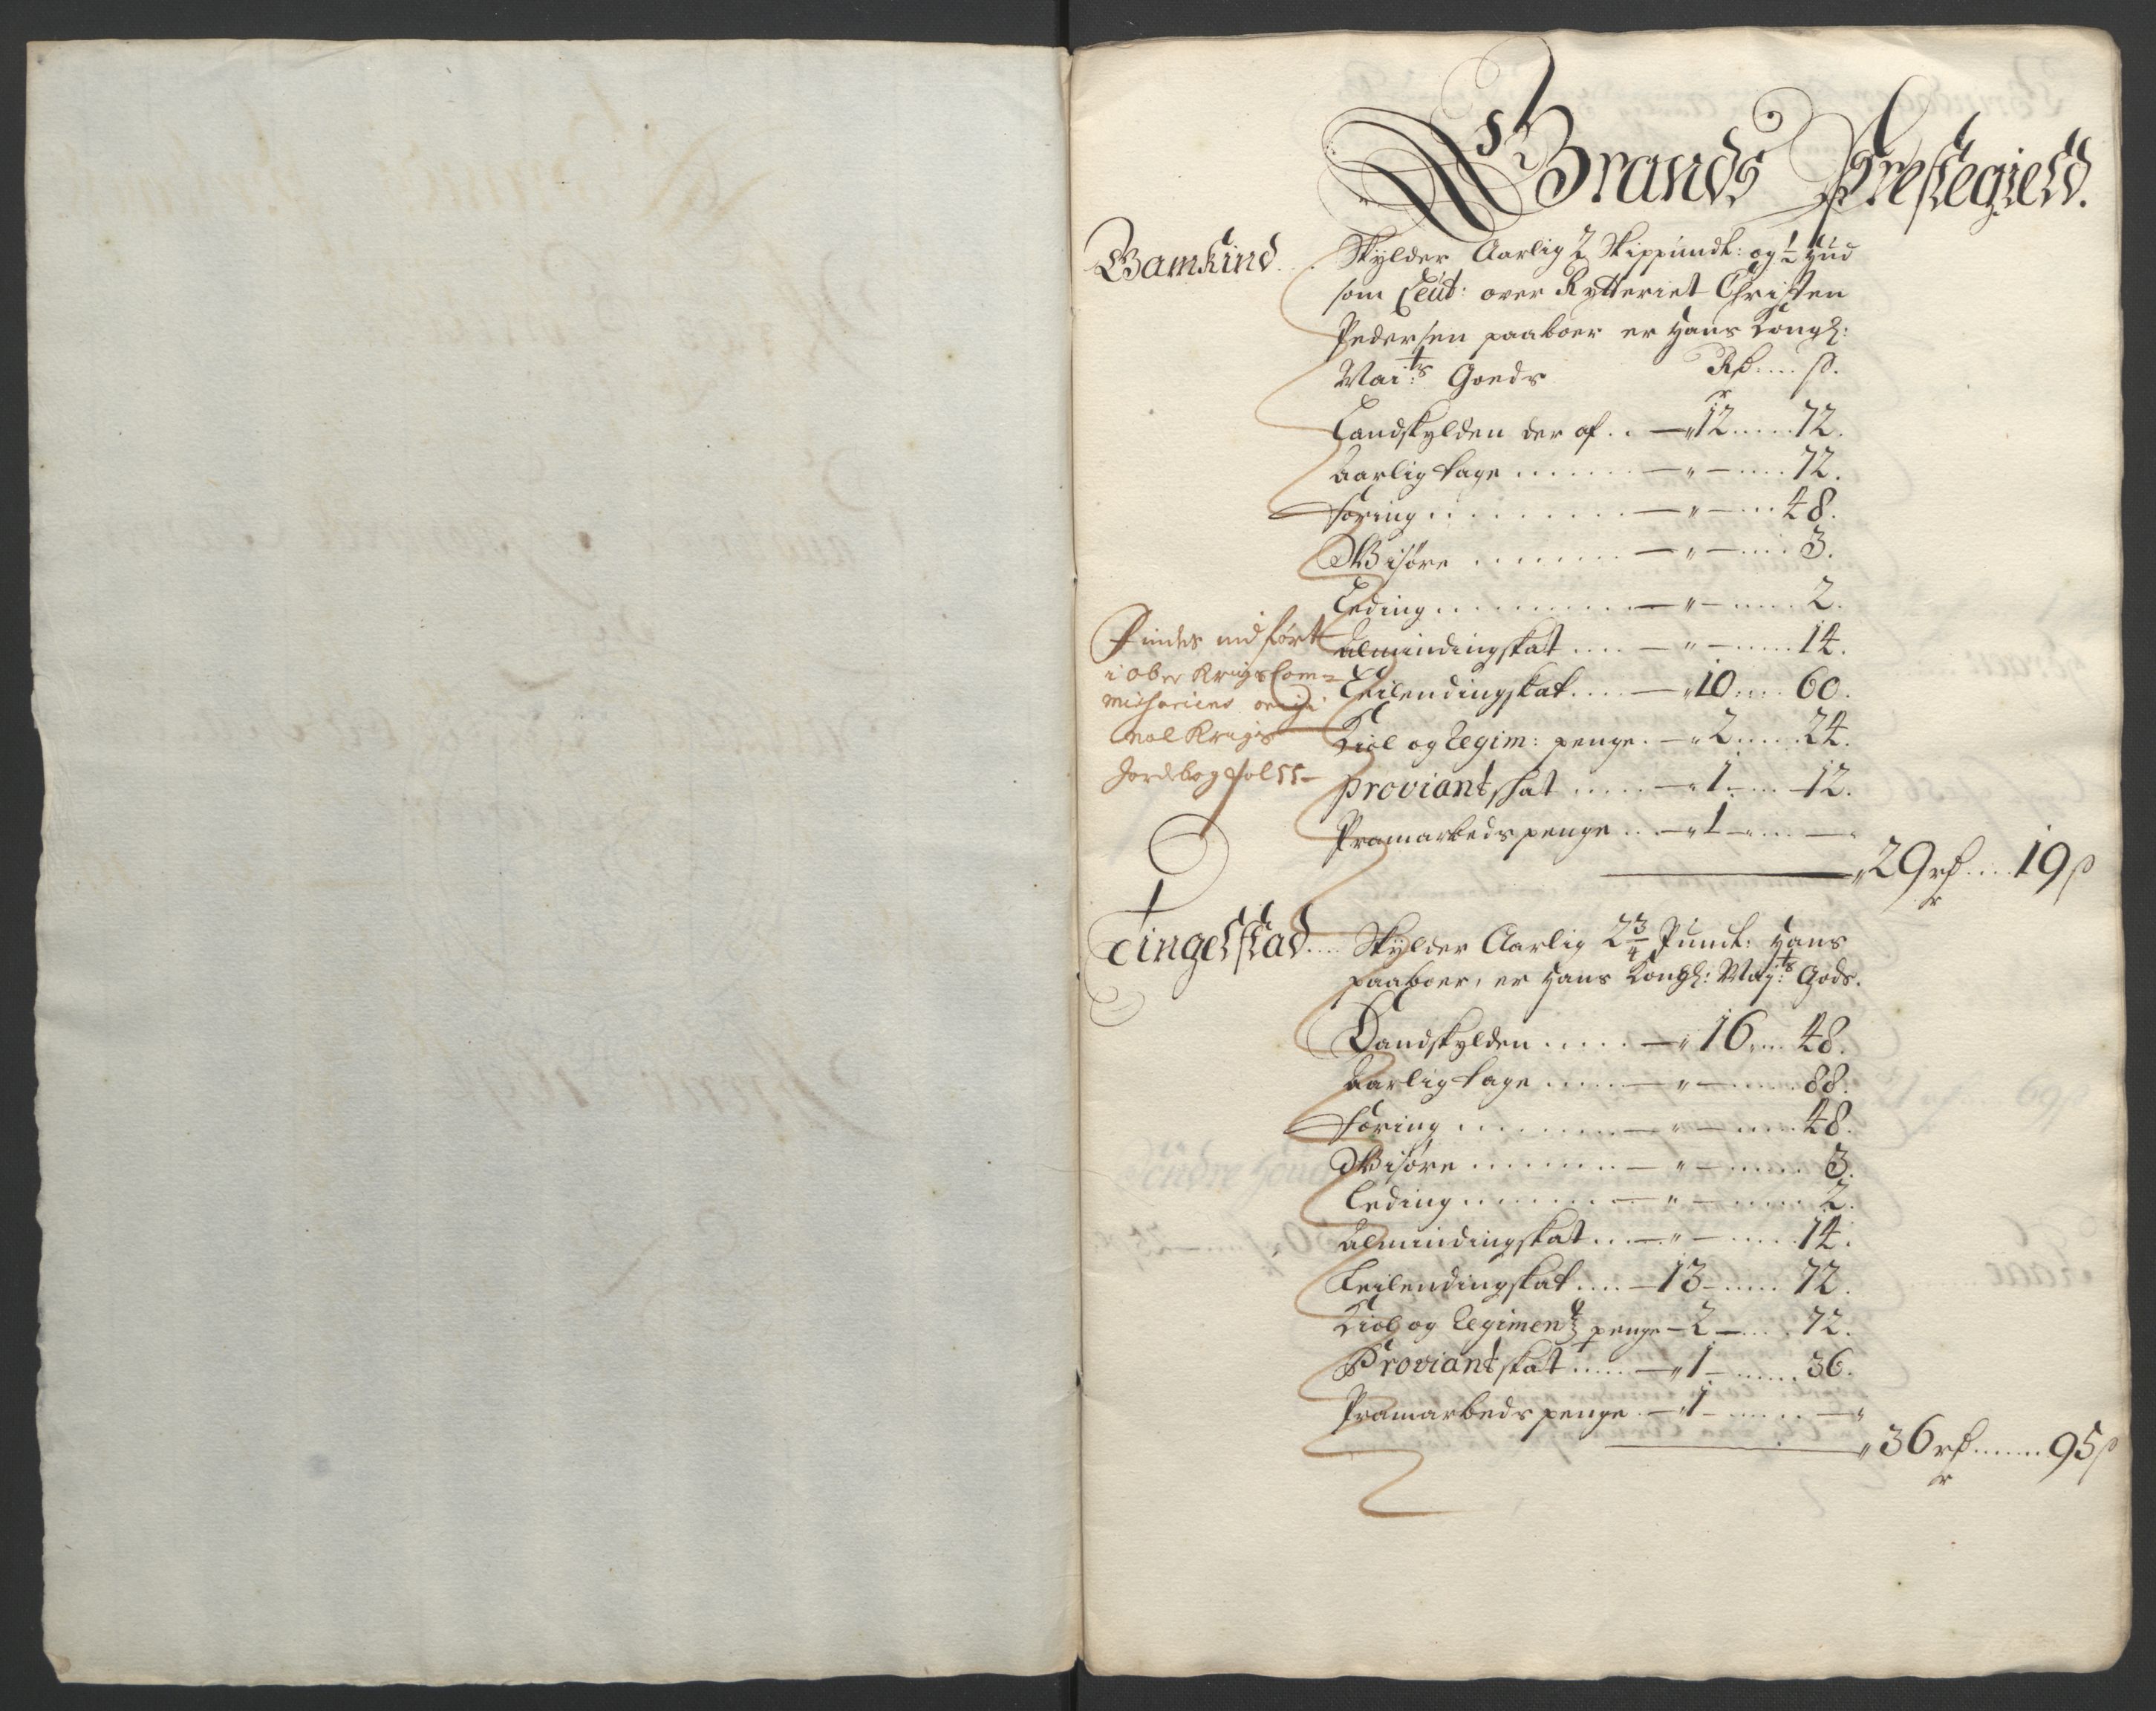 As Brands Prestegield.
Gamkind. Skylder Aarlig 2 Skippundt: og ½ Hud
som Leut: over Rytteriet Christen
Pedersen paaboer er Hans Kongl:
Mai:ts Goeds Rdr .... s.
Landskylden der af .. 12 ..... 72.
Aarlig tage ....... 72.
Foring ......... 48.
Wisøre ....... 3.
Leding ......... 2.
Almindingskat .... 14.
Leilendingskat .... 10 .... 60.
Kiol og Regim: penge . 2 ..... 24.
Proviantskat ..... 1 ..... 12.
Pramarbeds penge ... 1
Findes indført
i Ober Krigs Com=
missariens origi
nal Krigs
Jordebog fol 55
29 rdr .... 19 s
Tingelstad .... Skylder Aarlig 2¾ Pund: Hans
paaboer, er Hans Kongl: May:ts Gods.
Landskylden ..... 16 .... 48.
Aarlig tage ..... 88.
Foring ....... 48.
Wisøre ....... 3.
Leding ....... 2.
Almindingskat ... 14.
Leilendingskat .... 13 ..... 72.
Kiol og Regimentz penge 2 .... 72.
Proviantskat ..... 1 ...... 36.
Pramarbeds penge . 1
36 rdr ...... 95 s